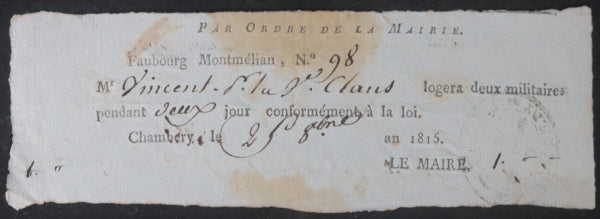 PAR ORDRE DE LA MAIRIE.
Faubourg Montmélian, N.° 98
Mr Vincent logera deux militaires
pendant deux jour conformément à la loi.
Chambéry, le 2 8bre an 1815.
LE MAIRE.